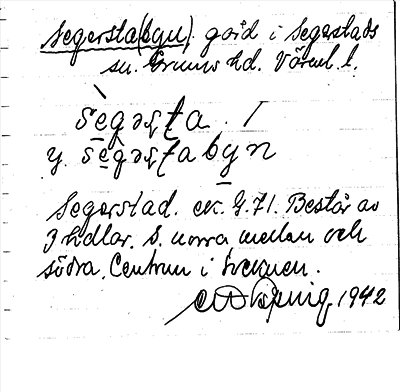 Segersta(byn) gård i Segerstads
sn. Grums hd. Värml. l.
sègəʂʈa. /
y. sègəʂʈabyn
Segerstad. ek. G.71. Består av
3 hdlar. S. norra, mellan och
södra. Centrum i socknen.
1942